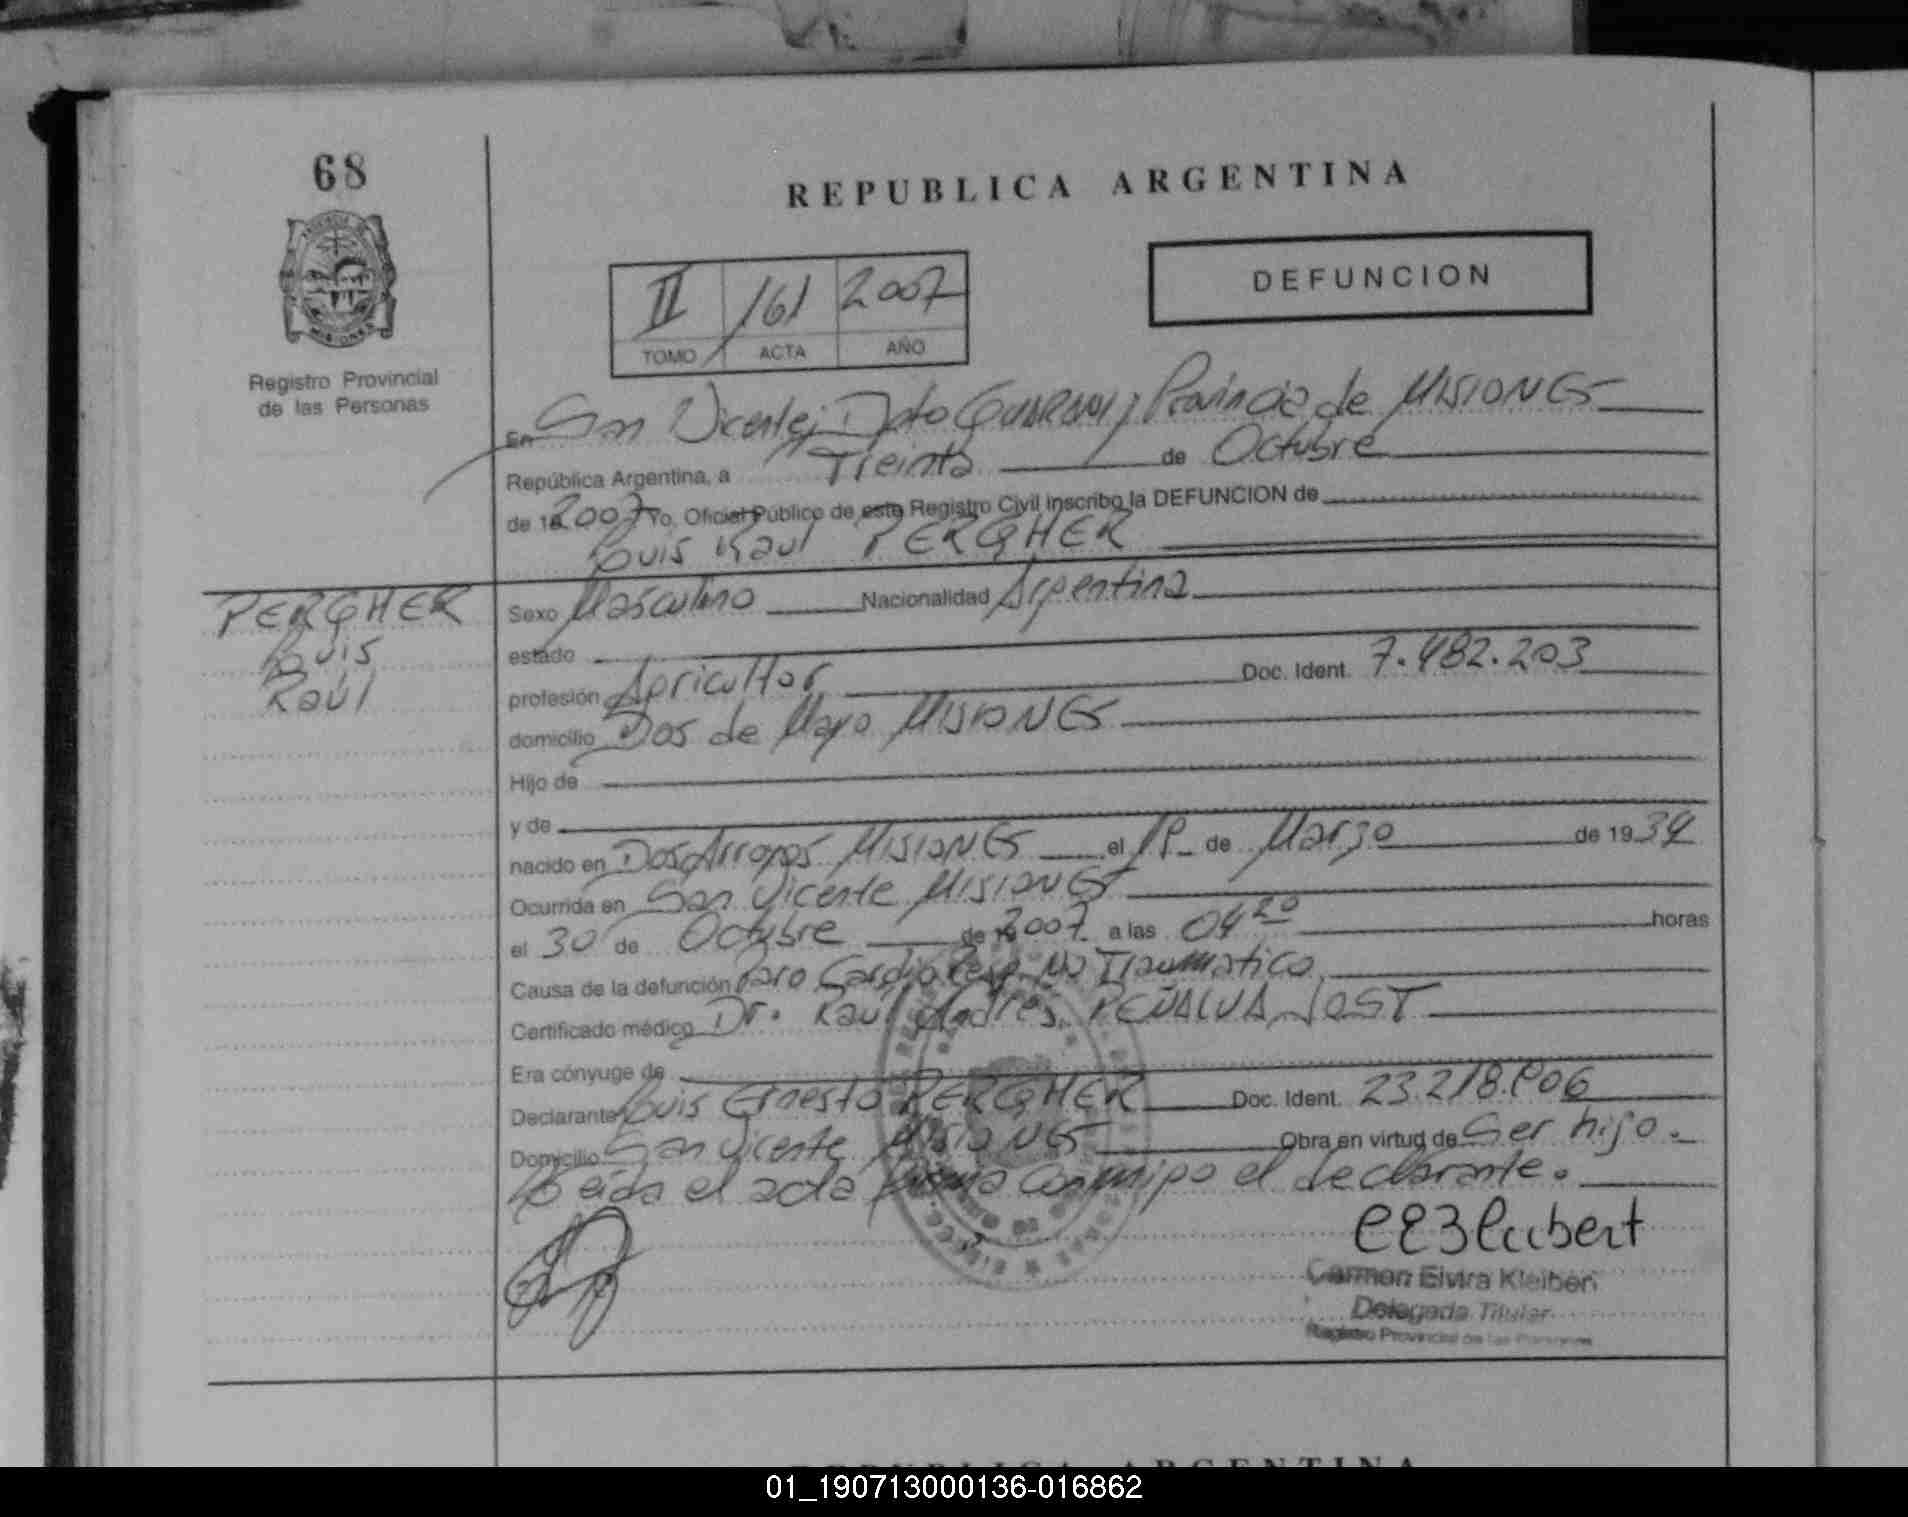 68
REPUBLICA ARGENTINA
DEFUNCION
II 161 2007
TOMO ACTA AÑO
Registro Provincial
de las Personas
En San Vicente, Dpto GUARANI, Provincia de MISIONES
República Argentina, a Treinta de Octubre
de 2007 Yo, Oficial Público de este Registro Civil inscribo la DEFUNCION de
Luis Raul PERGHER
PERGHER
Luis
Raúl
Sexo Masculino Nacionalidad Argentina
estado
profesión Agricultor Doc. Ident. 7.482.203
domicilio Dos de Mayo MISIONES
Hijo de
y de
nacido en Dos Arroyos MISIONES el de Marzo de 1939
Ocurrida en San Vicente MISIONES
el 30 de Octubre de 2007 a las 04 20 horas
Causa de la defunción Paro Cardio Resp. No Traumatico
Certificado médico Dr. Raúl Andres PEÑALVA JOST
Era cónyuge de
Declarante Luis Ernesto PERGHER Doc. Ident. 23.218.806
Domicilio San Vicente MISIONES Obra en virtud de Ser hijo.
Leída el acta firma conmigo el declarante.
Carmen Elvira Kleibert
Delegada Titular
Registro Provincial de las Personas
REPUBLICA ARGENTINA
01_190713000136-016862